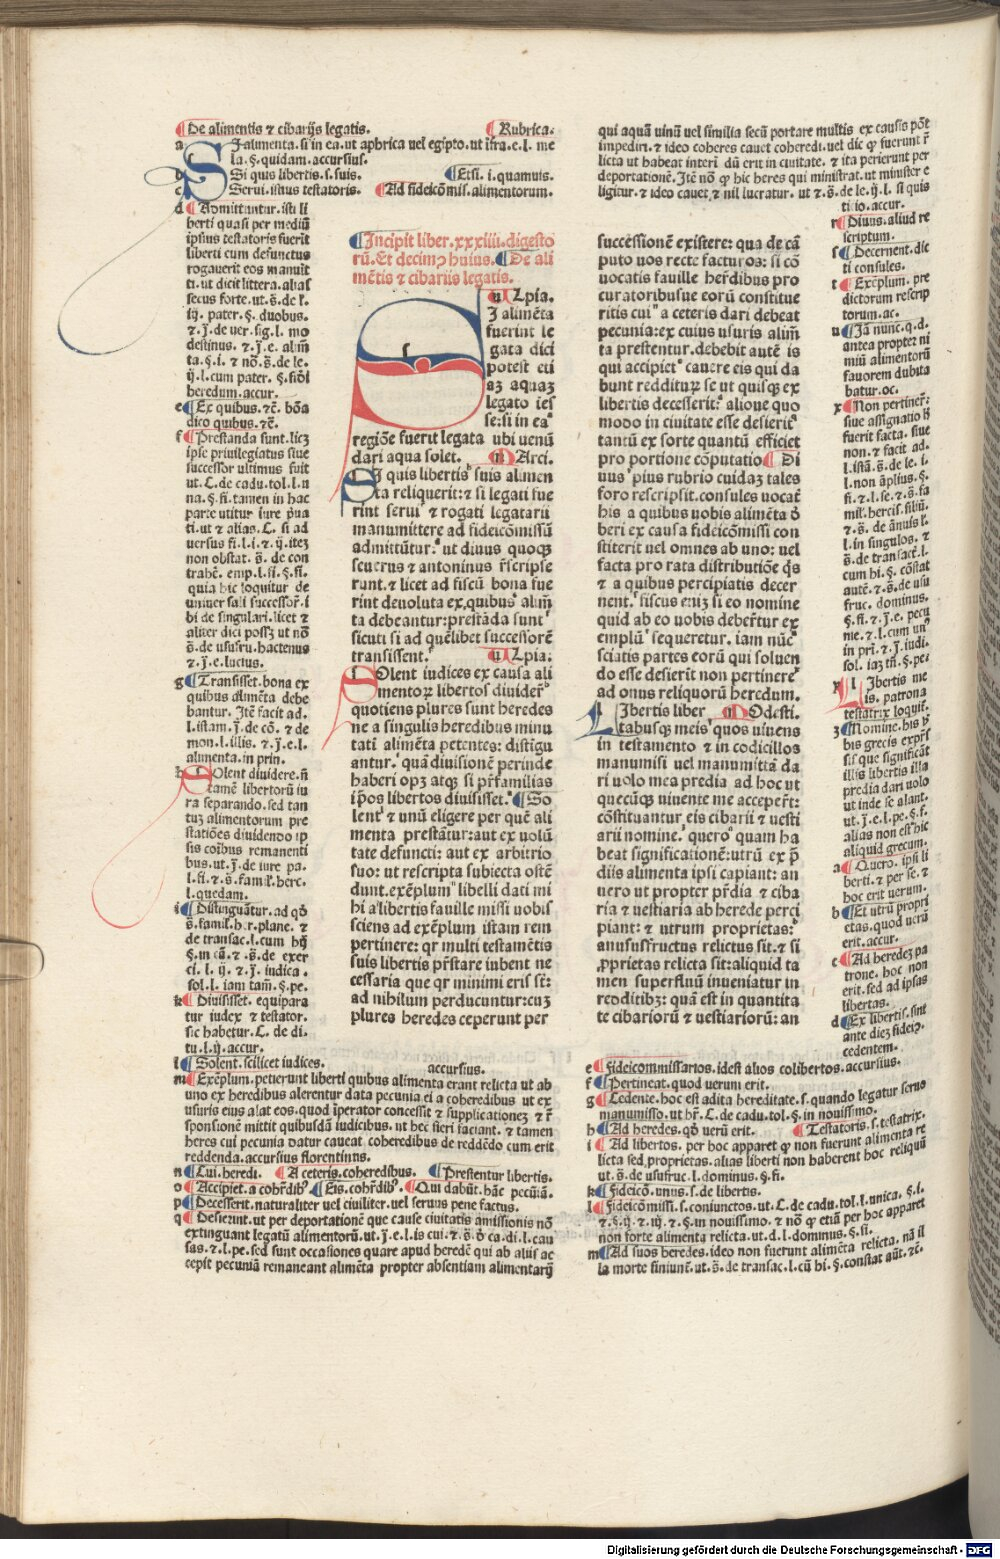 De alimentis ⁊ cibarijs legatis. Rubrica.
a SI alimenta. si in ea. ut aphrica uel egipto. ut ifra. e. l. me
la. §. quidam. accursius.
b Si quis libertis. s. suis. Etsi. i. quamuis.
c Serui. istius testatoris. Ad fideicōmis. alimentorum.
d Admittantur. isti li
berti quasi per mediū
ipsius testatoris fuerit
liberti cum defunctus
rogauerit eos manuit
ti. ut dicit littera. alias
secus forte. ut. s̄. de l.
iij. pater. §. duobus.
⁊. j̄. de uer. sig. l. mo
destinus. ⁊. j̄. e. alim̄
ta. §. i. ⁊ nō. s̄. de le.
ij. l. cum pater. §.
heredum. accur.
e Ex quibus. ⁊c̄. bōa
dico quibus. ⁊c̄.
f Prestanda sunt. licꝫ
ipse priuilegiatus siue
successor ultimus fuit
ut. C. de cadu. tol. l. u
na. §. fi. tamen in hac
parte utitur iure p̄ua
ti. ut ⁊ alias. C. si ad
uersus fi. l. i. ⁊. ij. iteꝫ
non obstat. s̄. de con
trahē. emp. l. si. §. fi.
quia hic loquitur de
uniuersali successor̄. i
bi de singulari. licet ⁊
aliter dici possꝫ ut nō
s̄. de usufru. hactenus
⁊. j̄. e. luctus.
g Transisset. bona ex
quibus alimēta debe
bantur. Itē facit ad.
l. istam. j̄. de cō. ⁊ de
mon. l. ⁊. j̄. e. l.
alimenta. in prin.
h SOlent diuidere. n̄
tamē libertorū iu
ra separando. sed tan
tuꝫ alimentorum pre
statiōes diuidendo ip
sis coībus remanenti
bus. ut. j̄. de iure pa.
l. fi. ⁊. s̄. famil. herc.
l. quedam.
i Distinguātur. ad qd̄
s̄. famil. her. plane. ⁊
de transac. l. cum hij
§. in cā. ⁊. s̄. de exer
ci. l. ij. ⁊. j̄. iudica.
sol. l. iam tam̄. §. pe.
k Diuisisset. equipara
tur iudex ⁊ testator.
sic habetur. C. de di.
tu. l. ij. accur.
l Solent. scilicet iudices. accursius.
m Exēplum. petierunt liberti quibus alimenta erant relicta ut ab
uno ex heredibus alerentur data pecunia ei a coheredibus ut ex
usuris eius alat eos. quod īperator concessit ⁊ supplicationeꝫ ⁊ r̄
sponsionē mittit quibusdā iudicibus. ut hec fieri faciant. ⁊ tamen
heres cui pecunia datur caueat coheredibus de reddēdo cum erit
reddenda. accursius florentinus.
n Cui. heredi. A ceteris. coheredibus. Prestentur libertis.
o Accipiet. a cohr̄dibꝰ. Eis. cohr̄dibꝰ. Qui dabūt. hāc pecūiā.
p Decesserit. naturaliter uel ciuiliter. uel seruus pene factus.
q Desierint. ut per deportationē que cause ciuitatis amissionis nō
extinguant legatū alimentorū. ut. j̄. e. l. is cui. ⁊. s̄. ca. di. l. cau
sas. ⁊. l. pe. sed sunt occasiones quare apud heredē qui ab alijs ac
cepit pecuniā remaneant alimēta propter absentiam alimentarij
Incipit liber. xxxiiii. digesto
rū. Et decimꝰ huius. De ali
mētis ⁊ cibarijs legatis.
uLpia.
SI alimēta
fuerint le
gata dici
potest eti
aꝫ aquaꝫ
legato ies
se: si in ea
regiōe fuerit legata ubi uenū
dari aqua solet. mArci.
SI quis libertis suis alimen
ta reliquerit: ⁊ si legati fue
rint serui ⁊ rogati legatarii
manumittere ad fideicōmissū
admittūtur: ut diuus quoqꝫ
seuerus ⁊ antoninus r̄scripse
runt. ⁊ licet ad fiscū bona fue
rint deuoluta ex quibus alim̄
ta debeantur: prestāda sunt
sicuti si ad quēlibet successorē
transissent. uLpia:
SOlent iudices ex causa ali
mentoꝝ libertos diuider̄
quotiens plures sunt heredes
ne a singulis heredibus minu
tati alimēta petentes: distigu
antur. quā diuisionē perinde
haberi opꝫ atqꝫ si pr̄familias
ip̄os libertos diuisisset. So
lent ⁊ unū eligere per quē ali
menta prestātur: aut ex uolū
tate defuncti: aut ex arbitrio
suo: ut rescripta subiecta ostē
dunt. exēplum libelli dati mi
hi a libertis fauille missi uobis
sciens ad exēplum istam rem
pertinere: qr multi testamētis
suis libertis pr̄stare iubent ne
cessaria que qr minimi eris st̄:
ad nibilum perducuntur: cuꝫ
plures heredes ceperunt per
qui aquā uinū uel similia secū portare multis ex causis pōt
impediri. ⁊ ideo coheres cauet coheredi. uel dic ꝙ fuerunt r̄
licta ut habeat interi dū erit in ciuitate. ⁊ ita perierunt per
deportationē. Itē nō ꝙ hic heres qui ministrat. ut minister e
ligitur. ⁊ ideo cauet ⁊ nil lucratur. ut ⁊. s̄. de le. ij. l. si quis
ti io. accur.
successionē existere: qua de cā
puto uos recte facturos: si cō
uocatis fauille her̄dibus pro
curatoribusue eorū constitue
ritis cui a ceteris dari debeat
pecunia: ex cuius usuris alim̄
ta prestentur. debebit autē is
qui accipiet cauere eis qui da
bunt redditurꝫ se ut quisqꝫ ex
libertis decesserit: alioue quo
modo in ciuitate esse desierit
tantū ex sorte quantū efficiet
pro portione cōputatio Di
uus pius rubrio cuidaꝫ tales
foro rescripsit. consules uocat̄
his a quibus uobis alimēta d̄
beri ex causa fideicōmissi con
stiterit uel omnes ab uno: uel
facta pro rata distributiōe q̄s
⁊ a quibus percipiatis decer
nent. fiscus eniꝫ si eo nomine
quid ab eo uobis deber̄tur ex
emplū sequeretur. iam nūc
sciatis partes eorū qui soluen
do esse desierit non pertinere
ad onus reliquorū heredum.
LIbertis liber mOdesti.
tabusqꝫ meis quos uiuens
in testamento ⁊ in codicillos
manumisi uel manumittā da
ri uolo mea predia ad hoc ut
quecūqꝫ uiuente me accepeŕt:
cōstituantur eis cibarii ⁊ uesti
arii nomine. quero quam ha
beat significationē: utrū ex p̄
diis alimenta ipsi capiant: an
uero ut propter pr̄dia ⁊ ciba
ria ⁊ uestiaria ab herede perci
piant: ⁊ utrum proprietas:
anusufructus relictus sit. ⁊ si
proprietas relicta sit: aliquid ta
men superfluū inueniatur in
redditibꝫ: quā est in quantita
te cibariorū ⁊ uestiariorū: an
r Diuus. aliud re
scriptum.
s Decernent. dic
ti consules.
t Exēplum. pre
dictorum rescrip
torum. ac.
u Iā nunc. q. d.
antea proptet ni
miū alimentorū
fauorem dubita
batur. oc.
x Non pertiner̄:
siue assignatio il
fuerit facta. siue
non. ⁊ facit ad.
l. istā. s̄. de le. i.
l. non āplius. §.
fi. ⁊. l. se. ⁊. s̄. fa
mil. hercis. filiū.
⁊. s̄. de ānuis l.
l. in singulos. ⁊
s̄. de transact. l.
cum hi. §. cōstat
autē. ⁊. s̄. de usu
fruc. dominus.
§. fi. ⁊. j̄. e. pecu
nie. ⁊. l. cum un
in pri. ⁊. j̄. iudi.
sol. iaꝫ tn̄. §. pe.
y LIbertis me
is. patrona
testatrix loquit̄.
z Nomine. his ūb
bis grecis expr̄s
sit que significāt
illis libertis illa
predia dari uolo
ut inde se alant.
ut. j̄. e. l. pe. §. f.
alias non est hic
aliquid grecum.
a Quero. ipsi li
berti. ⁊ per se. ⁊
hoc erit uerum.
b Et utrū propri
etas. quod uerū
erit. accur.
c Ad heredeꝫ pa
trone. hoc non
erit. sed ad ipsas
libertas.
d Ex libertis. sint
ante dieꝫ fideiꝯ.
cedentem.
e fideicommissarios. idest alios colibertos. accursius.
f Pertineat. quod uerum erit.
g Cedente. hoc est adita hereditate. s. quando legatur seruo
manumisso. ut hr̄. C. de cadu. tol. §. in nouissimo.
h Ad heredes. qd̄ uerū erit. Testatoris. s. testatrix.
i Ad libertos. per hoc apparet ꝙ non fuerunt alimenta re
licta sed proprietas. alias liberti non haberent hoc reliquū
ut. s̄. de usufruc. l. dominus. §. fi.
k fideicō. unus. s. de libertis.
l fideicōmissi. s. coniunctos. ut. C. de cadu. tol. l. unica. §. i.
⁊. §. ij. ⁊. iij. ⁊. §. in nouissimo. ⁊ nō ꝙ etiā per hoc apparet
non forte alimenta relicta. ut. d. l. dominus. §. fi.
m Ad suos heredes. ideo non fuerunt alimēta relicta. nā il
la morte finiunt̄. ut. s̄. de transac. l. cū hi. §. constat aūt. ⁊c̄.
Digitalisierung gefördert durch die Deutsche Forschungsgemeinschaft - DFG